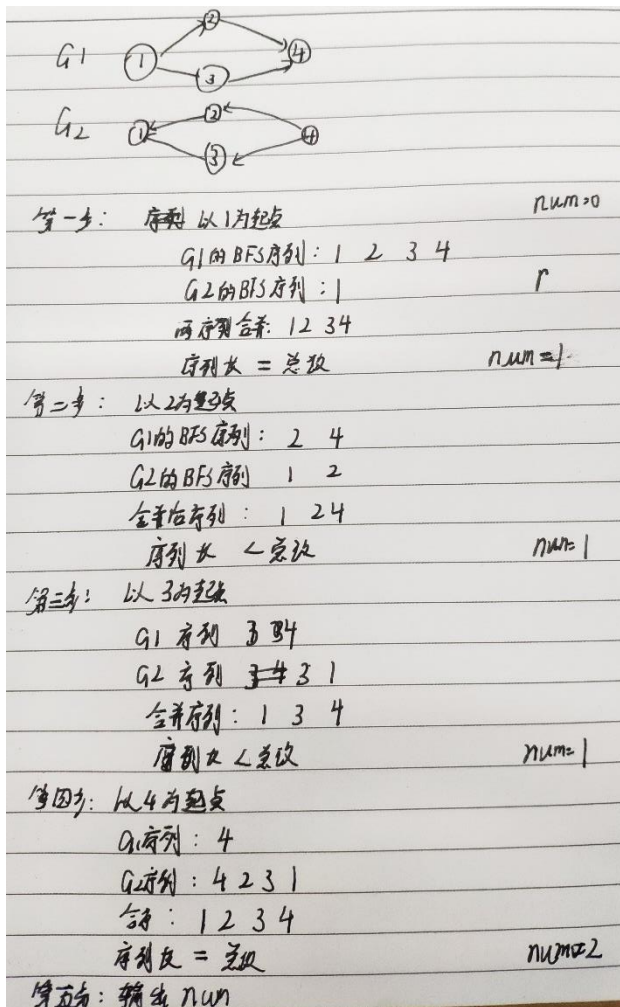 G1 1 2 3 4
G2 1 2 3 4
第一步: 以1为起点 num=0
G1的BFS序列: 1 2 3 4
G2的BFS序列: 1 r
两序列合并: 1 2 3 4
序列长 = 总数 num=1
第二步: 以2为起点
G1的BFS序列: 2 4
G2的BFS序列 1 2
合并后序列: 1 2 4
序列长 < 总数 num=1
第三步: 以3为起点
G1序列 3 4
G2序列 3 1
合并序列: 1 3 4
序列长 < 总数 num=1
第四步: 以4为起点
G1序列: 4
G2序列: 4 2 3 1
合并: 1 2 3 4
序列长 = 总数 num=2
第五步: 输出 num